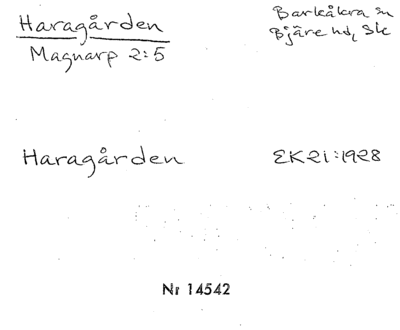 Haragården
Magnarp 2:5
Barkåkra sn
Bjäre hd, Sk
Haragården
EK21:1928
Nr 14542